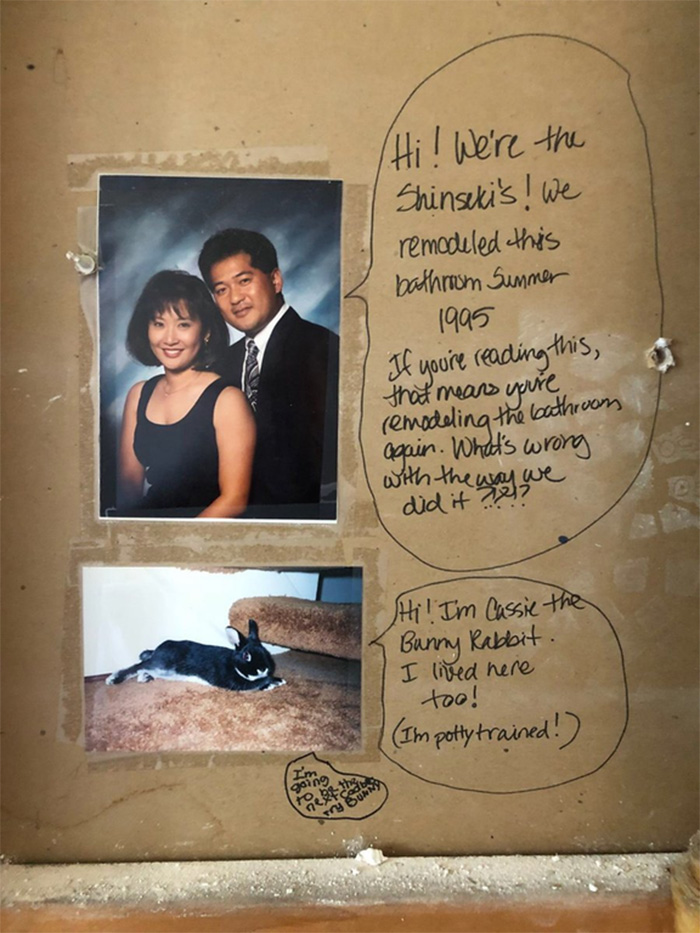 Hi! We're the
Shinseki's! We
remodeled this
bathroom Summer
1995
If you're reading this,
that means you're
remodeling the bathroom
again. What's wrong
with the way we
did it ?????
Hi! I'm Cassie the
Bunny Rabbit.
I lived here
too!
(I'm potty trained!)
I'm
going
to be the
next Cadbu
rry Bunny